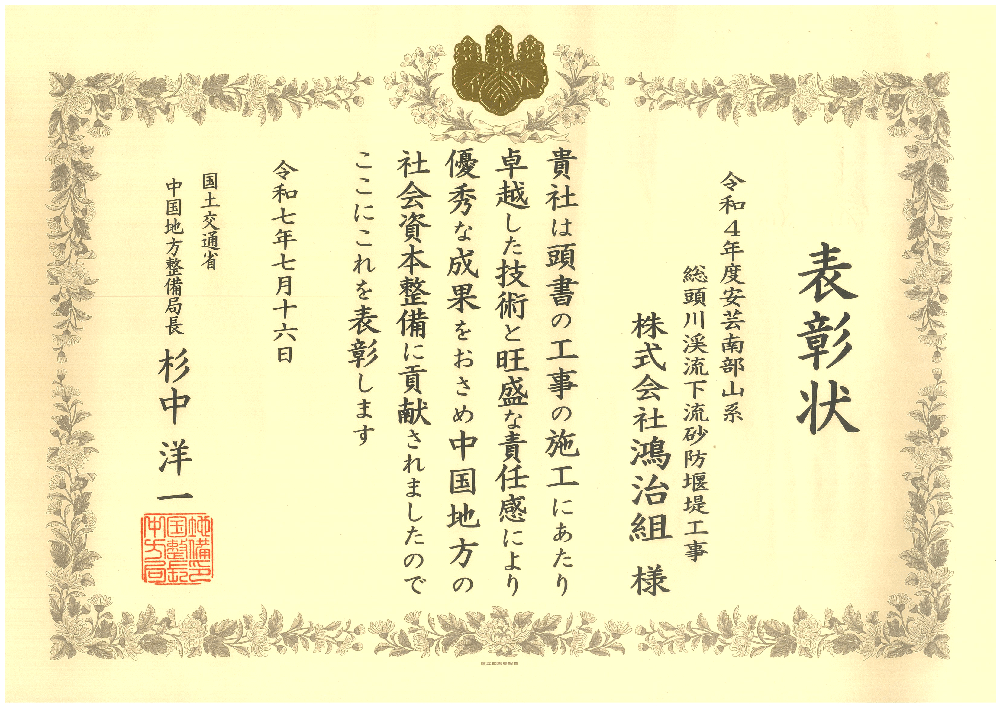 表彰状
令和４年度安芸南部山系
総頭川渓流下流砂防堰堤工事
株式会社鴻治組 様
貴社は頭書の工事の施工にあたり
卓越した技術と旺盛な責任感により
優秀な成果をおさめ中国地方の
社会資本整備に貢献されましたので
ここにこれを表彰します
令和七年七月十六日
国土交通省
中国地方整備局長 杉中洋一